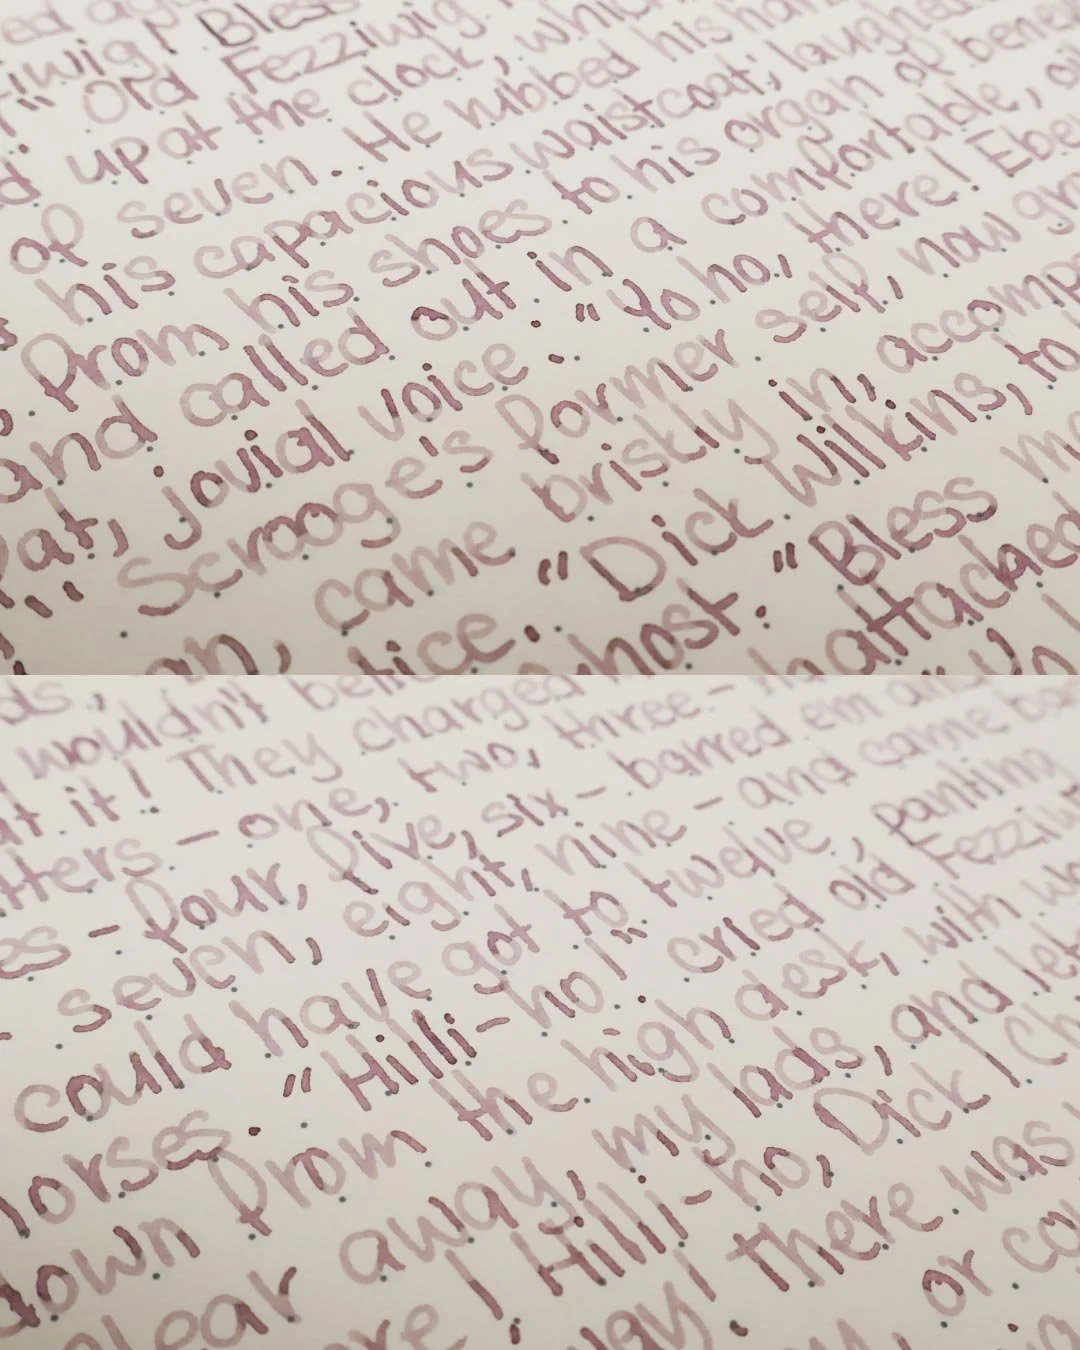 Bless
" Old Fezziwig
up at the clock, which
of seven. He rubbed his
his capacious waistcoat; laughed
from his shoes to his organ of bene
and called out in a comfortable,
at, jovial voice: "Yo ho, there! Ebe
Scrooge's former self, now gr
an, came briskly in, accomp
tice. "Dick Wilkins, to
host. "Bless
attached
wouldn't
at it! They charged
tters - one, two, three -
es - four, five, six - barred em and
seven, eight, nine - and came
could have got to twelve, panting
horses. "Hilli-ho!" cried old Fezziw
down from the high desk, with
clear away, my lads, and let
ere! Hilli-ho, Dick! Ch
there was
or co